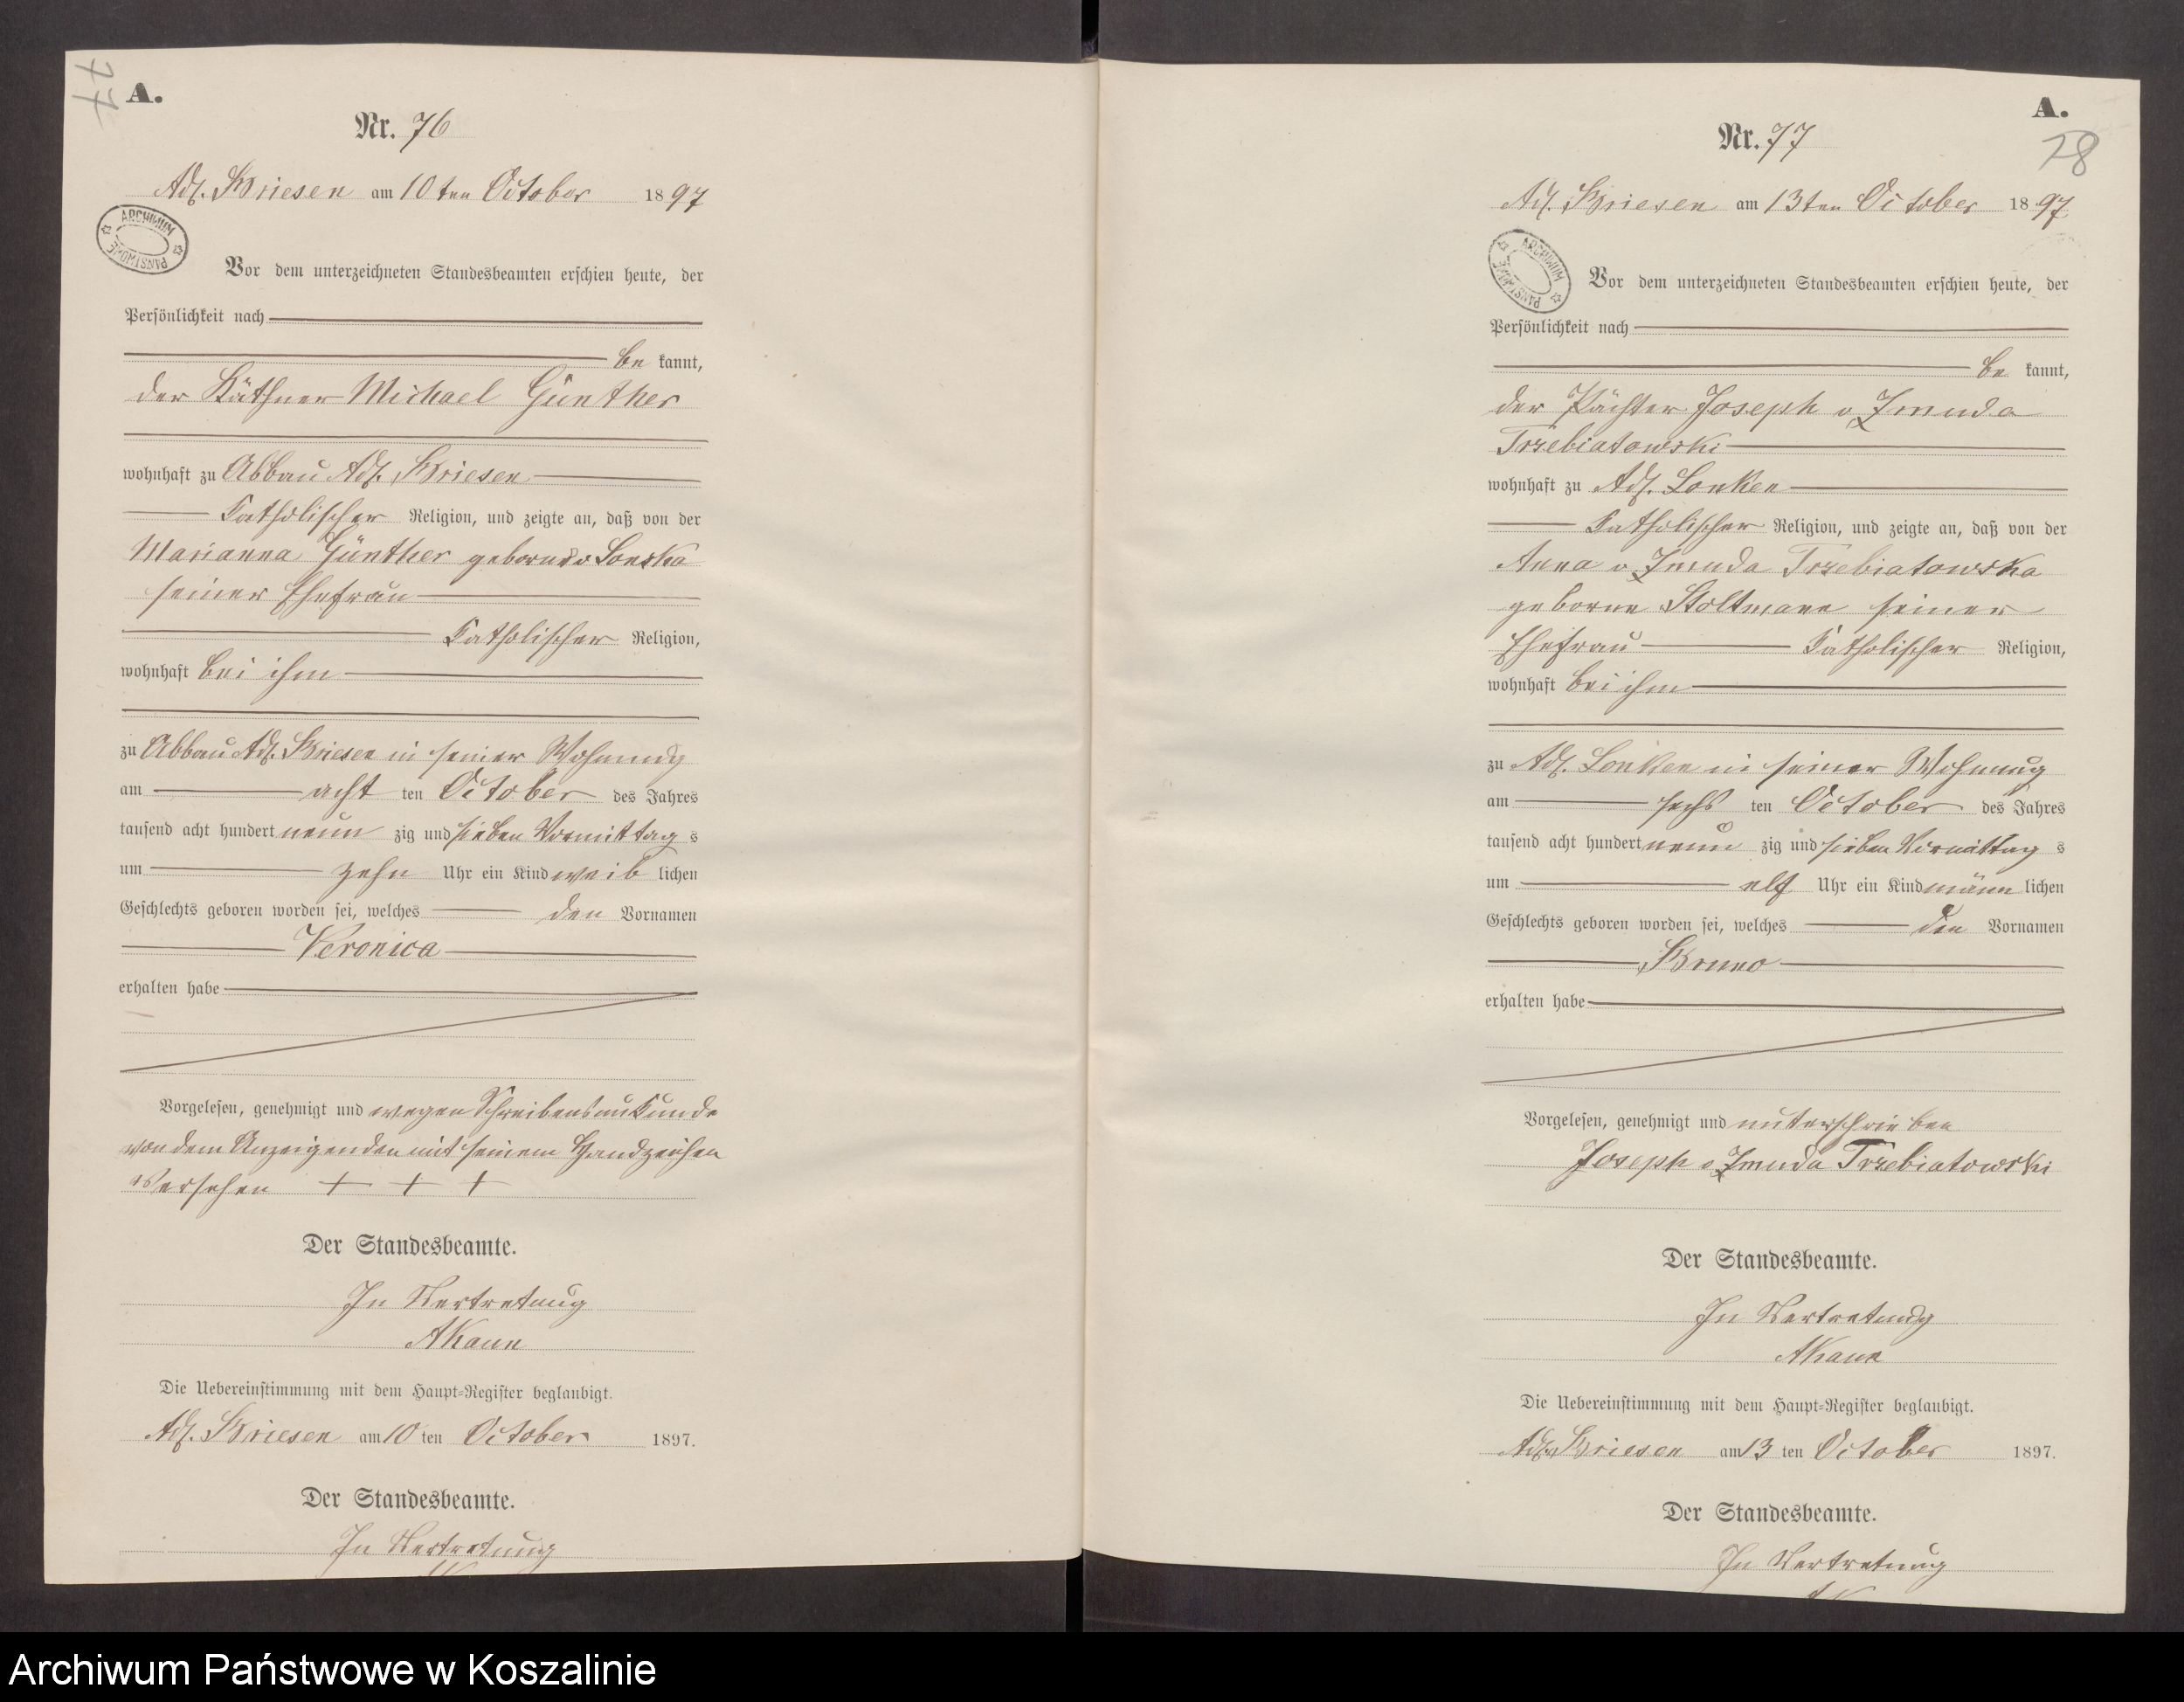 77
A.
Nr. 76
Adl. Briesen am 10ten October 1897
ARCHIWUM PAŃSTWOWE
Vor dem unterzeichneten Standesbeamten erschien heute, der
Persönlichkeit nach
be kannt,
der Käthner Michael Günther
wohnhaft zu Abbau Adl. Briesen
Katholischer Religion, und zeigte an, daß von der
Marianna Günther geborne v Lonska
seiner Ehefrau
Katholischer Religion,
wohnhaft bei ihm
zu Abbau Adl. Briesen in seiner Wohnung
am acht ten October des Jahres
tausend acht hundert neun zig und sieben Vormittag s
um zehn Uhr ein Kind weib lichen
Geschlechts geboren worden sei, welches den Vornamen
Veronica
erhalten habe
Vorgelesen, genehmigt und wegen Schreibensunkunde
von dem Anzeigenden mit seinem Handzeichen
versehen + + +
Der Standesbeamte.
In Vertretung
AKann
Die Uebereinstimmung mit dem Haupt-Register beglaubigt.
Adl. Briesen am 10 ten October 1897.
Der Standesbeamte.
In Vertretung
A.
78
Nr. 77
Adl. Briesen am 13ten October 1897
ARCHIWUM PAŃSTWOWE
Vor dem unterzeichneten Standesbeamten erschien heute, der
Persönlichkeit nach
be kannt,
der Pächter Joseph v Zmuda
Trzebiatowski
wohnhaft zu Adl. Lonken
Katholischer Religion, und zeigte an, daß von der
Anna v Zmuda Trzebiatowska
geborne Stoltmann seiner
Ehefrau Katholischer Religion,
wohnhaft bei ihm
zu Adl. Lonken in seiner Wohnung
am sechs ten October des Jahres
tausend acht hundert neun zig und sieben Vormittag s
um elf Uhr ein Kind männ lichen
Geschlechts geboren worden sei, welches den Vornamen
Bruno
erhalten habe
Vorgelesen, genehmigt und unterschrieben
Joseph v Zmuda Trzebiatowski
Der Standesbeamte.
In Vertretung
AKann
Die Uebereinstimmung mit dem Haupt-Register beglaubigt.
Adl. Briesen am 13 ten October 1897.
Der Standesbeamte.
In Vertretung
Archiwum Państwowe w Koszalinie